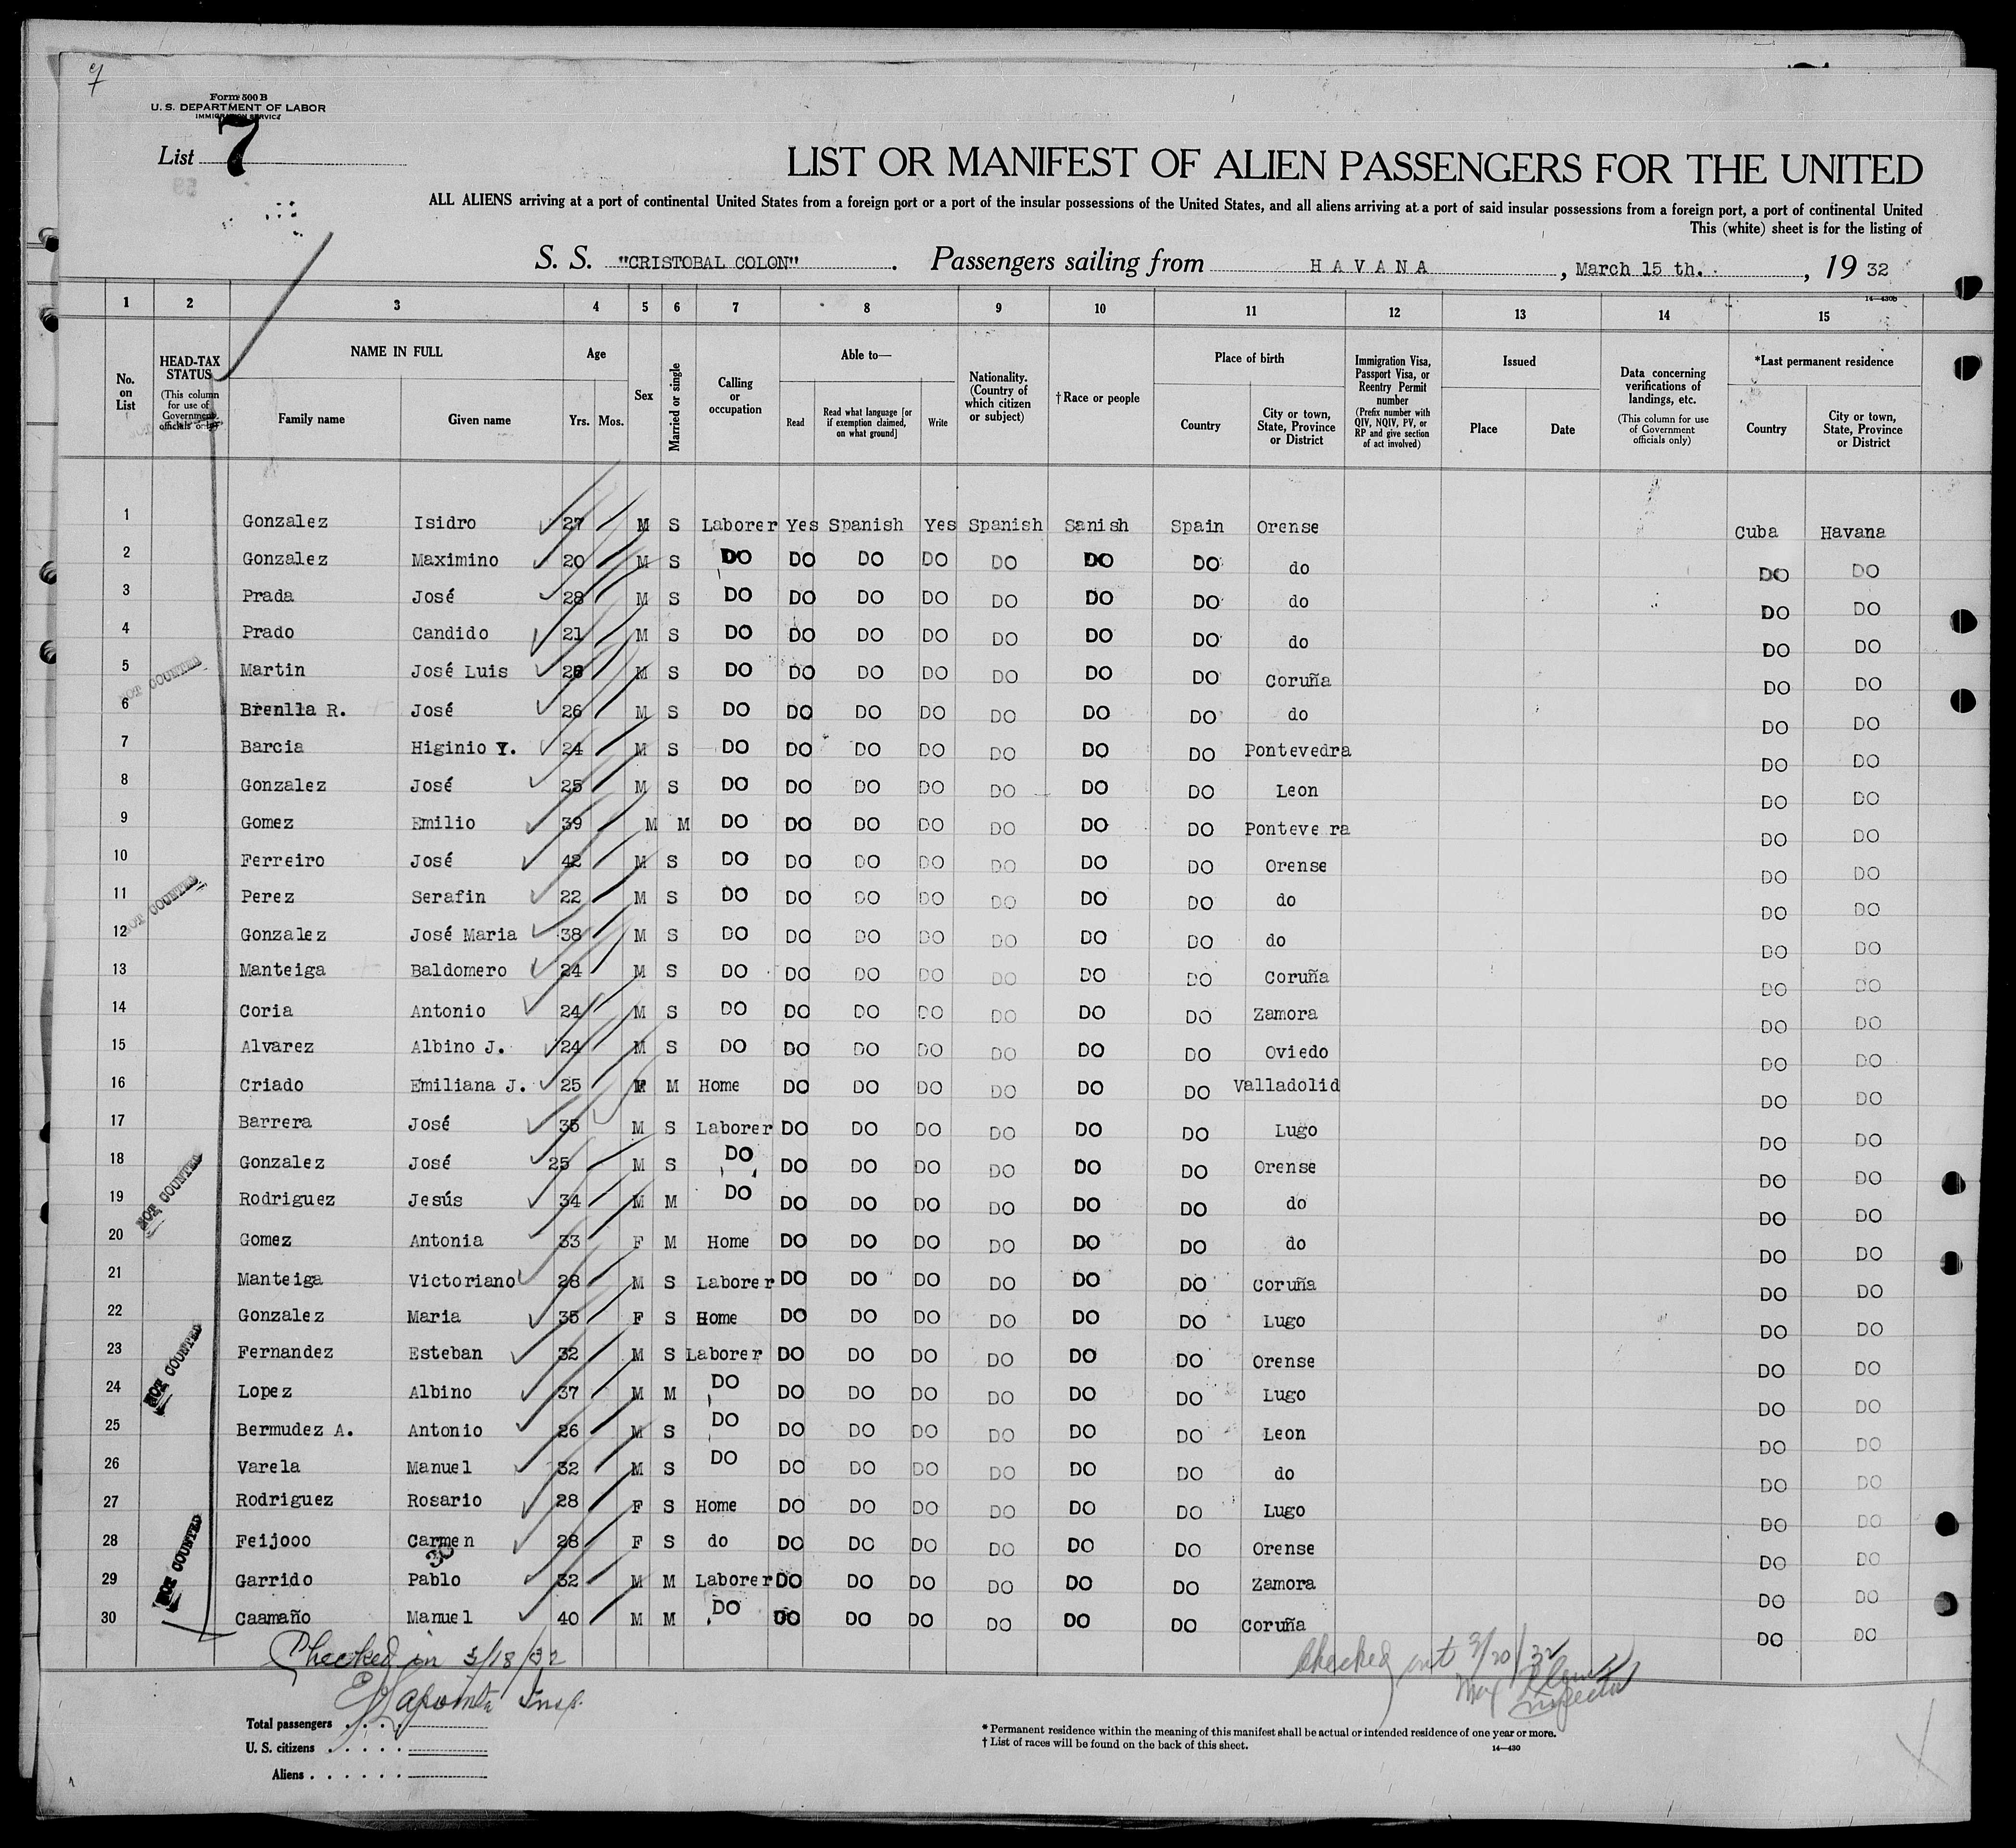 Form 500 B
U. S. DEPARTMENT OF LABOR
IMMIGRATION SERVICE
List 7
LIST OR MANIFEST OF ALIEN PASSENGERS FOR THE UNITED
ALL ALIENS arriving at a port of continental United States from a foreign port or a port of the insular possessions of the United States, and all aliens arriving at a port of said insular possessions from a foreign port, a port of continental United
This (white) sheet is for the listing of
S. S. "CRISTOBAL COLON". Passengers sailing from HAVANA, March 15 th., 19 32
14—430B
1 2 3 4 5 6 7 8 9 10 11 12 13 14 15
No. on List
HEAD-TAX STATUS (This column for use of Government officials only)
NAME IN FULL
Family name Given name
Age
Yrs. Mos.
Sex
Married or single
Calling or occupation
Able to—
Read Read what language [or if exemption claimed, on what ground] Write
Nationality. (Country of which citizen or subject)
†Race or people
Place of birth
Country City or town, State, Province or District
Immigration Visa, Passport Visa, or Reentry Permit number (Prefix number with QIV, NQIV, PV, or RP and give section of act involved)
Issued
Place Date
Data concerning verifications of landings, etc. (This column for use of Government officials only)
*Last permanent residence
Country City or town, State, Province or District
1 Gonzalez Isidro 27 M S Laborer Yes Spanish Yes Spanish Sanish Spain Orense Cuba Havana
2 Gonzalez Maximino 20 M S DO DO DO DO DO DO DO do DO DO
3 Prada José 28 M S DO DO DO DO DO DO DO do DO DO
4 Prado Candido 21 M S DO DO DO DO DO DO DO do DO DO
5 Martin José Luis M S DO DO DO DO DO DO DO Coruña DO DO
NOT COUNTED
6 Brenlla R. José 26 M S DO DO DO DO DO DO DO do DO DO
7 Barcia Higinio Y. 24 M S DO DO DO DO DO DO DO Pontevedra DO DO
8 Gonzalez José 25 M S DO DO DO DO DO DO DO Leon DO DO
9 Gomez Emilio 39 M M DO DO DO DO DO DO DO Ponteve ra DO DO
10 Ferreiro José 42 M S DO DO DO DO DO DO DO Orense DO DO
11 Perez Serafin 22 M S DO DO DO DO DO DO DO do DO DO
NOT COUNTED
12 Gonzalez José Maria 38 M S DO DO DO DO DO DO DO do DO DO
13 Manteiga Baldomero 24 M S DO DO DO DO DO DO DO Coruña DO DO
14 Coria Antonio 24 M S DO DO DO DO DO DO DO Zamora DO DO
15 Alvarez Albino J. 24 M S DO DO DO DO DO DO DO Oviedo DO DO
16 Criado Emiliana J. 25 M Home DO DO DO DO DO DO Valladolid DO DO
17 Barrera José 35 M S Laborer DO DO DO DO DO DO Lugo DO DO
18 Gonzalez José 25 M S DO DO DO DO DO DO DO Orense DO DO
NOT COUNTED
19 Rodriguez Jesús 34 M M DO DO DO DO DO DO DO do DO DO
20 Gomez Antonia 33 F M Home DO DO DO DO DO DO do DO DO
21 Manteiga Victoriano 28 M S Laborer DO DO DO DO DO DO Coruña DO DO
22 Gonzalez Maria 35 F S Home DO DO DO DO DO DO Lugo DO DO
23 Fernandez Esteban 32 M S Laborer DO DO DO DO DO DO Orense DO DO
NOT COUNTED
24 Lopez Albino 37 M M DO DO DO DO DO DO DO Lugo DO DO
25 Bermudez A. Antonio 26 M S DO DO DO DO DO DO DO Leon DO DO
26 Varela Manuel 32 M S DO DO DO DO DO DO DO do DO DO
27 Rodriguez Rosario 28 F S Home DO DO DO DO DO DO Lugo DO DO
28 Feijooo Carmen 28 F S do DO DO DO DO DO DO Orense DO DO
NOT COUNTED
30
29 Garrido Pablo 32 M M Laborer DO DO DO DO DO DO Zamora DO DO
30 Caamaño Manuel 40 M M DO DO DO DO DO DO DO Coruña DO DO
Checked in 3/18/32
Lapointe Insp.
Checked out 3/20/32
Max
Inspector
Total passengers
U. S. citizens
Aliens
* Permanent residence within the meaning of this manifest shall be actual or intended residence of one year or more.
† List of races will be found on the back of this sheet.
14—430